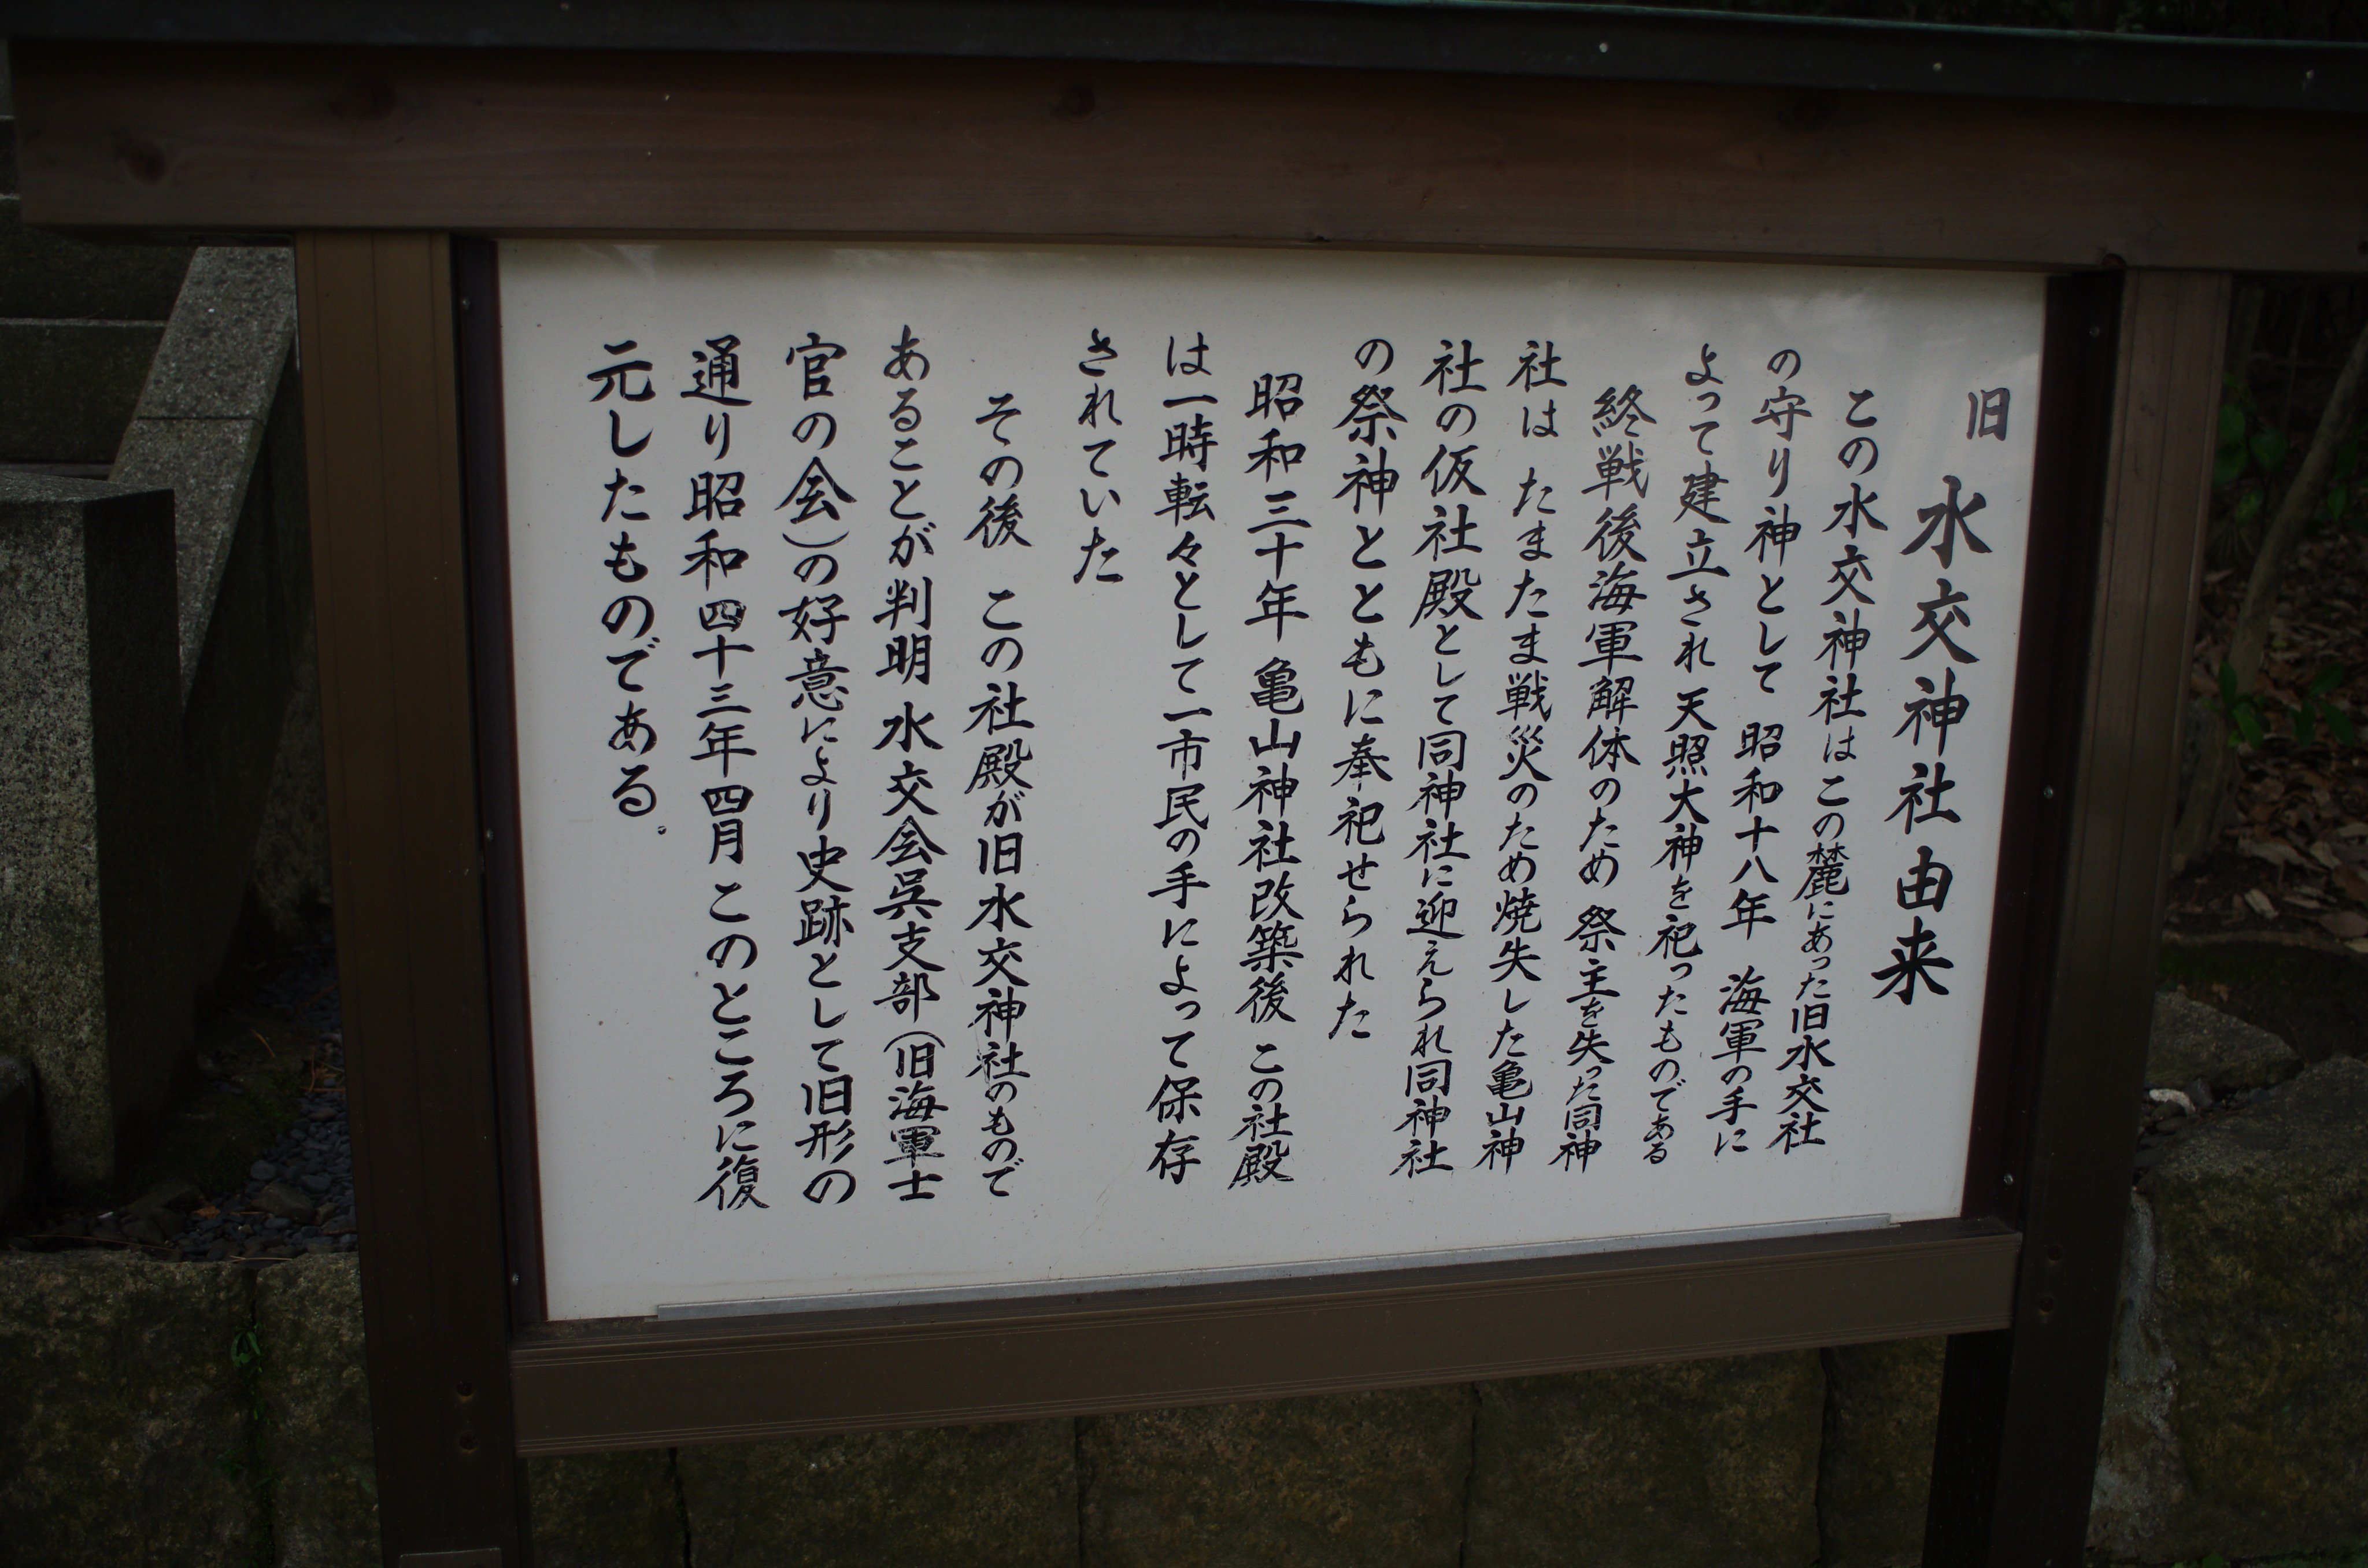 旧 水交神社由来
この水交神社はこの麓にあった旧水交社
の守り神として 昭和十八年 海軍の手に
よって建立され 天照大神を祀ったものである
終戦後海軍解体のため 祭主を失った同神
社は たまたま戦災のため焼失した亀山神
社の仮社殿として同神社に迎えられ同神社
の祭神とともに奉祀せられた
昭和三十年 亀山神社改築後 この社殿
は一時転々として一市民の手によって保存
されていた
その後 この社殿が旧水交神社のもので
あることが判明 水交会呉支部(旧海軍士
官の会)の好意により史跡として旧形の
通り昭和四十三年四月 このところに復
元したものである。